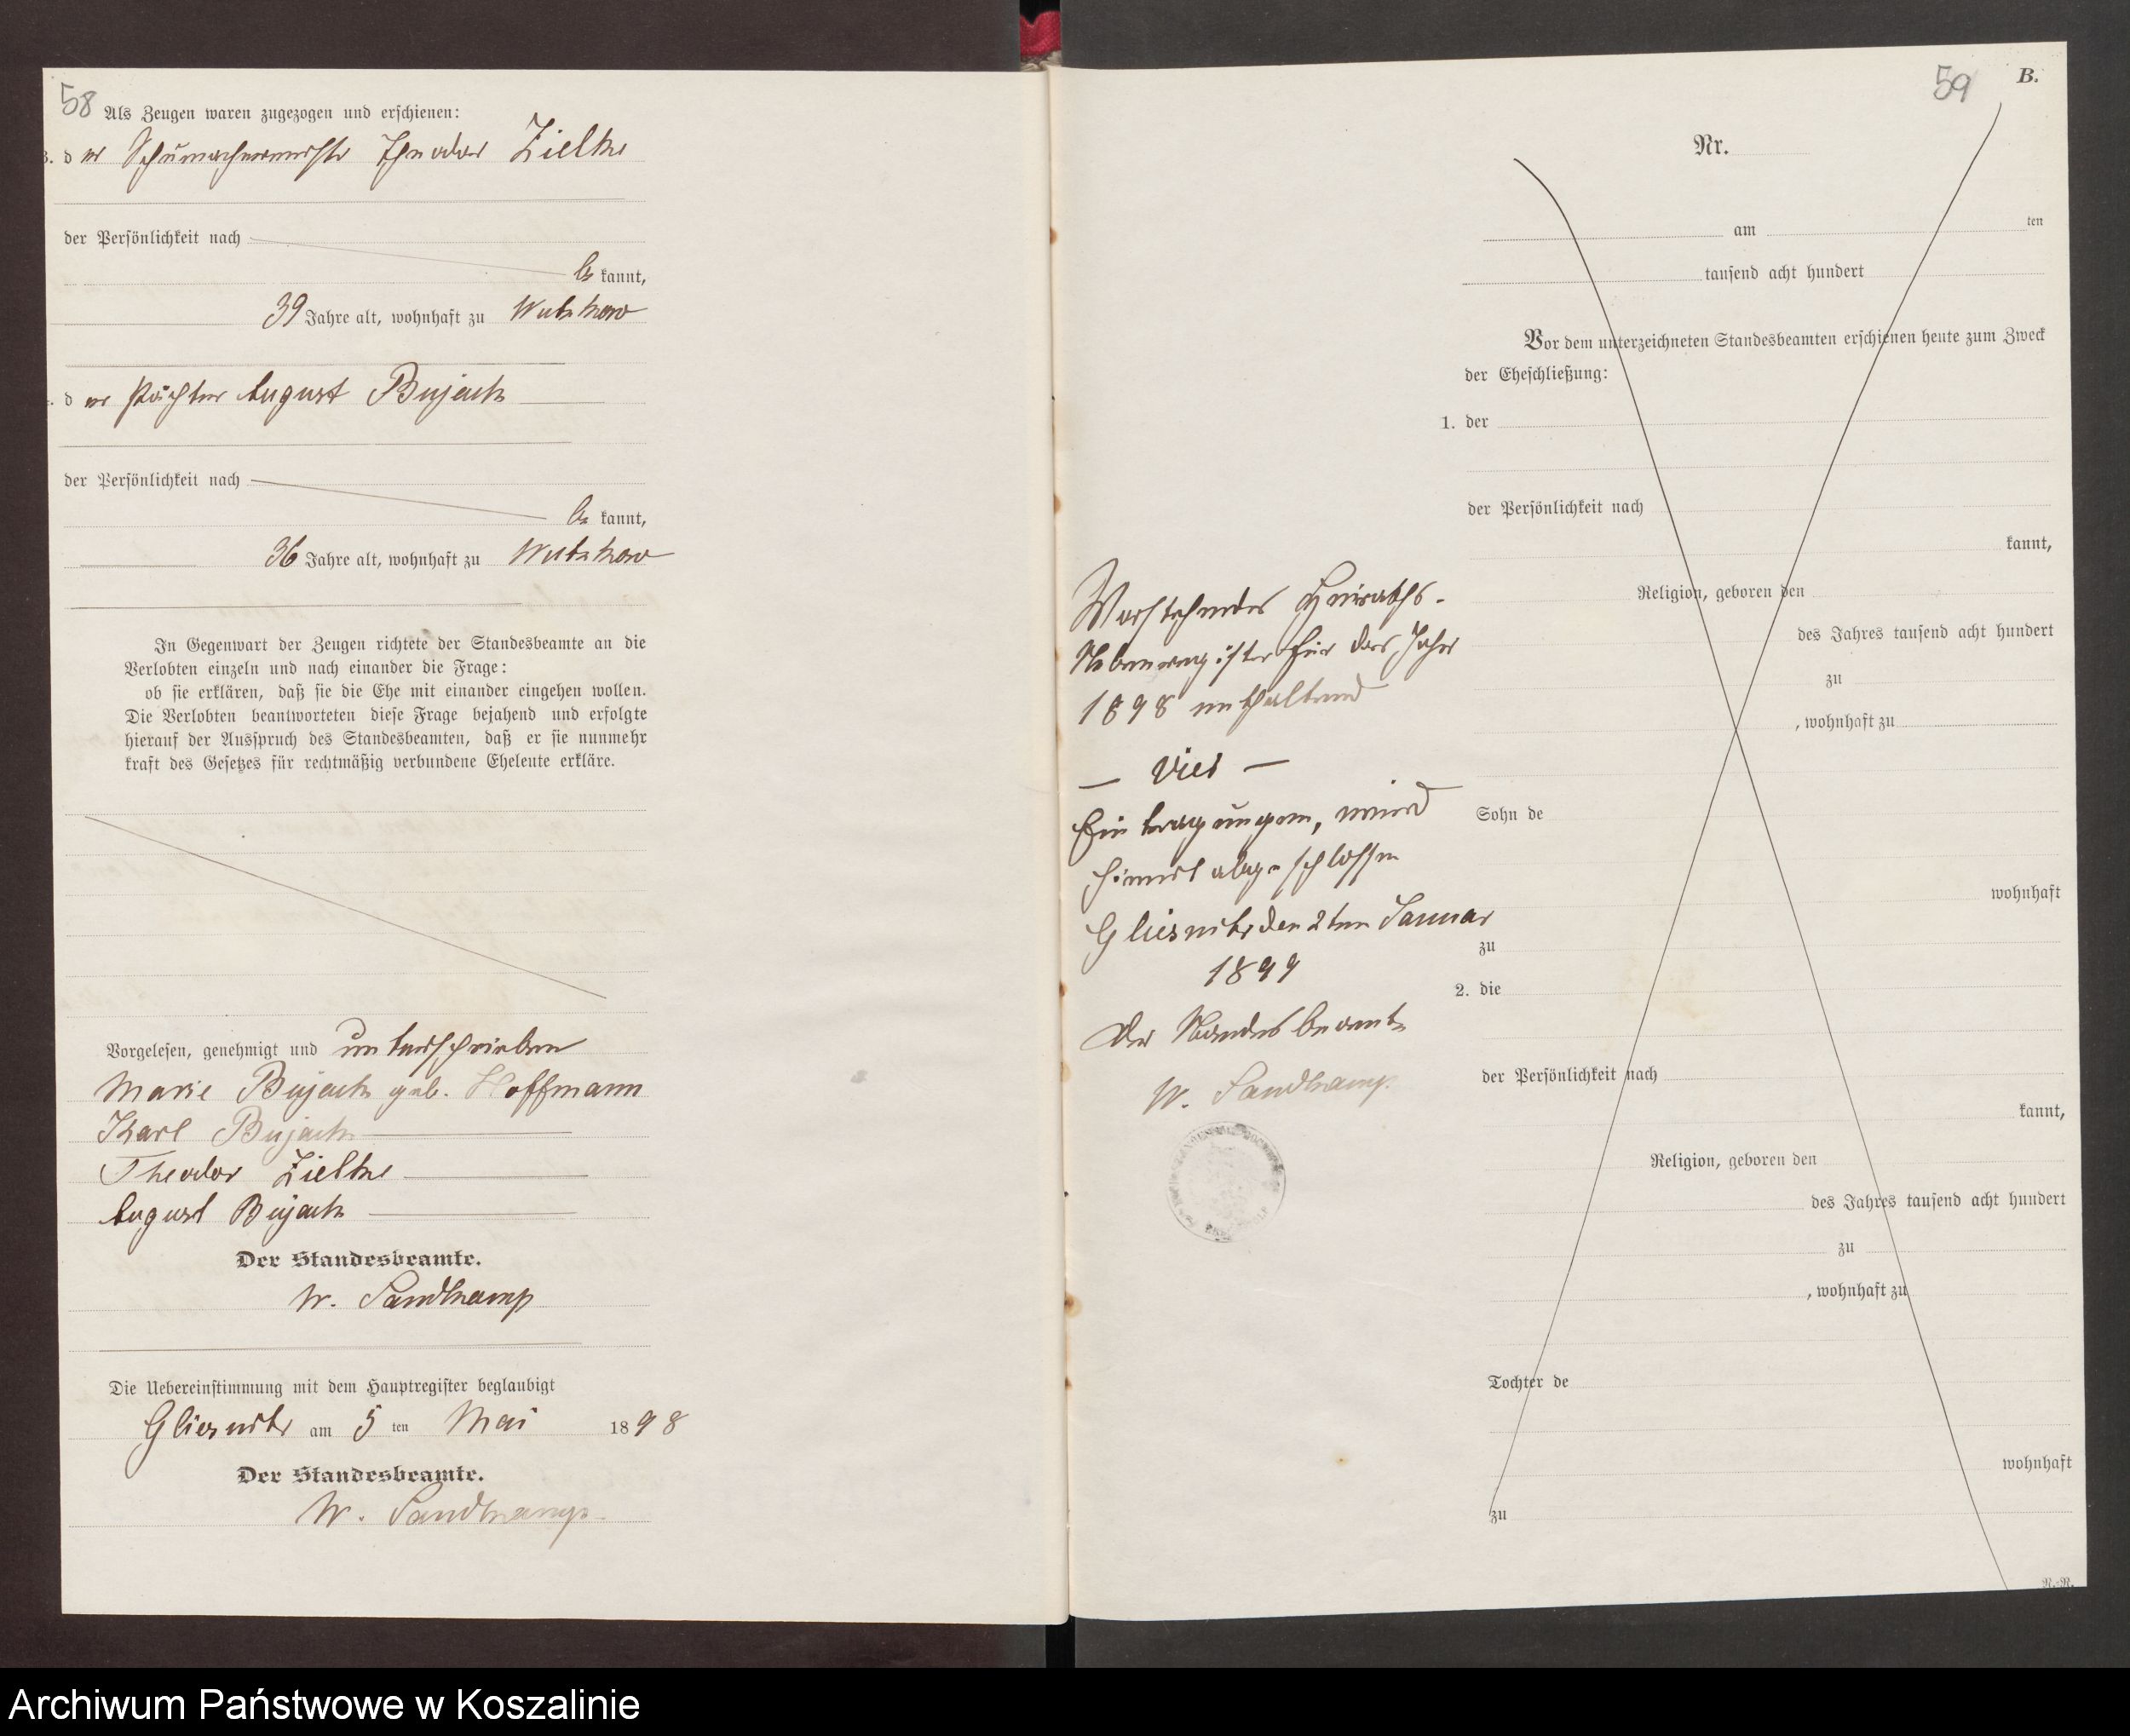 58
Als Zeugen waren zugezogen und erschienen:
3. der Schumachermeister Theodor Zielke
der Persönlichkeit nach
be kannt,
39 Jahre alt, wohnhaft zu Wutzkow
4. der Pächter August Bujack
der Persönlichkeit nach
be kannt,
36 Jahre alt, wohnhaft zu Wutzkow
In Gegenwart der Zeugen richtete der Standesbeamte an die
Verlobten einzeln und nach einander die Frage:
ob sie erklären, daß sie die Ehe mit einander eingehen wollen.
Die Verlobten beantworteten diese Frage bejahend und erfolgte
hierauf der Ausspruch des Standesbeamten, daß er sie nunmehr
kraft des Gesetzes für rechtmäßig verbundene Eheleute erkläre.
Vorgelesen, genehmigt und unterschrieben
Marie Bujack geb. Hoffmann
Karl Bujack
Theodor Zielke
August Bujack
Der Standesbeamte.
W. Sandkamp
Die Uebereinstimmung mit dem Hauptregister beglaubigt
Gliesnitz am 5 ten Mai 1898
Der Standesbeamte.
W. Sandkamp
Vorstehendes Heiraths-
Nebenregister für das Jahr
1898 enthaltend
— vier —
Eintragungen, wird
hiermit abgeschlossen
Gliesnitz den 2ten Januar
1899
Der Standesbeamte
W. Sandkamp
59
B.
Nr.
am ten
tausend acht hundert
Vor dem unterzeichneten Standesbeamten erschienen heute zum Zweck
der Eheschließung:
1. der
der Persönlichkeit nach
kannt,
Religion, geboren den
des Jahres tausend acht hundert
zu
, wohnhaft zu
Sohn de
wohnhaft
zu
2. die
der Persönlichkeit nach
kannt,
Religion, geboren den
des Jahres tausend acht hundert
zu
, wohnhaft zu
Tochter de
wohnhaft
zu
Archiwum Państwowe w Koszalinie